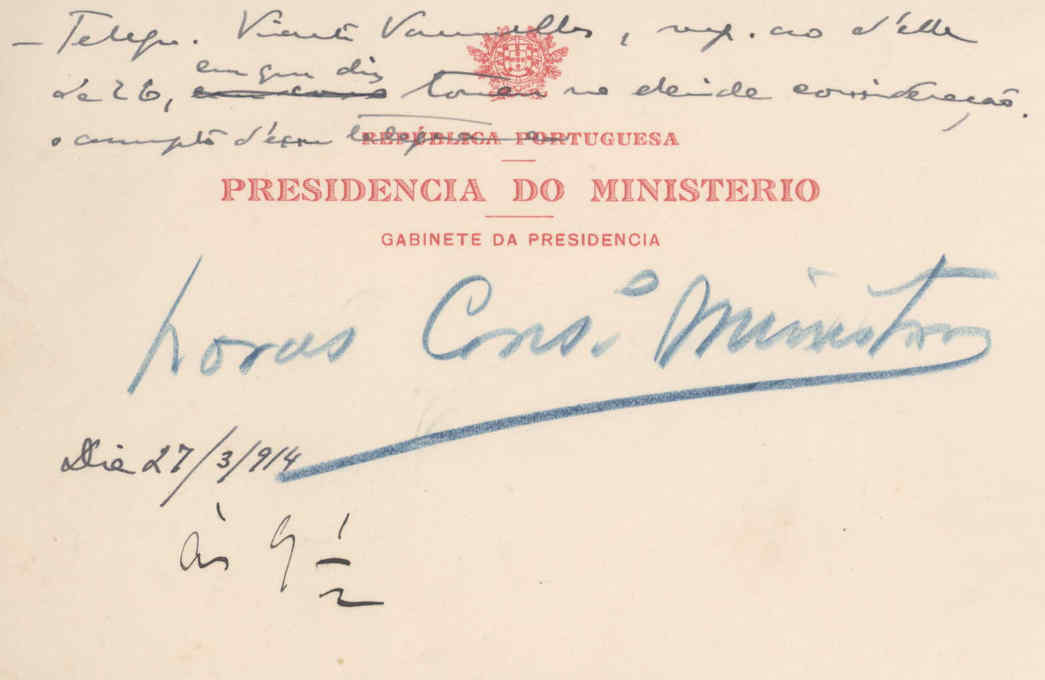 – Telegr. Vicente Vasconcellos, resp. ao d'elle
de 26, em que diz tomar na devida consideração.
o assumpto d'esse telegr
REPÚBLICA PORTUGUESA
PRESIDENCIA DO MINISTERIO
GABINETE DA PRESIDENCIA
horas Cons.º Ministros
Dia 27/3/914
às 9 1/2